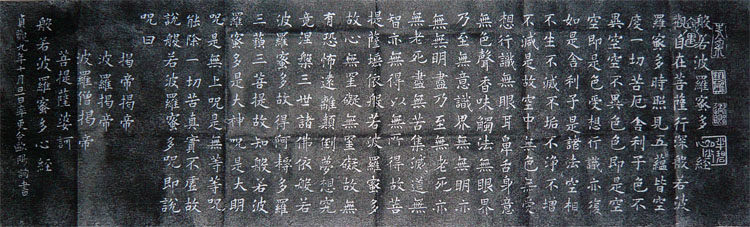 般若波羅蜜多心經
觀自在菩薩行深般若波
羅蜜多時照見五蘊皆空
度一切苦厄舍利子色不
異空空不異色色即是空
空即是色受想行識亦復
如是舍利子是諸法空相
不生不滅不垢不淨不增
不減是故空中無色無受
想行識無眼耳鼻舌身意
無色聲香味觸法無眼界
乃至無意識界無無明亦
無無明盡乃至無老死亦
無老死盡無苦集滅道無
智亦無得以無所得故菩
提薩埵依般若波羅蜜多
故心無罣礙無罣礙故無
有恐怖遠離顛倒夢想究
竟涅槃三世諸佛依般若
波羅蜜多故得阿耨多羅
三藐三菩提故知般若波
羅蜜多是大神呪是大明
呪是無上呪是無等等呪
能除一切苦真實不虛故
說般若波羅蜜多呪即說
呪曰
揭帝揭帝
波羅揭帝
波羅僧揭帝
菩提薩婆訶
般若波羅蜜多心經
貞觀九年十月旦日率更令歐陽詢書